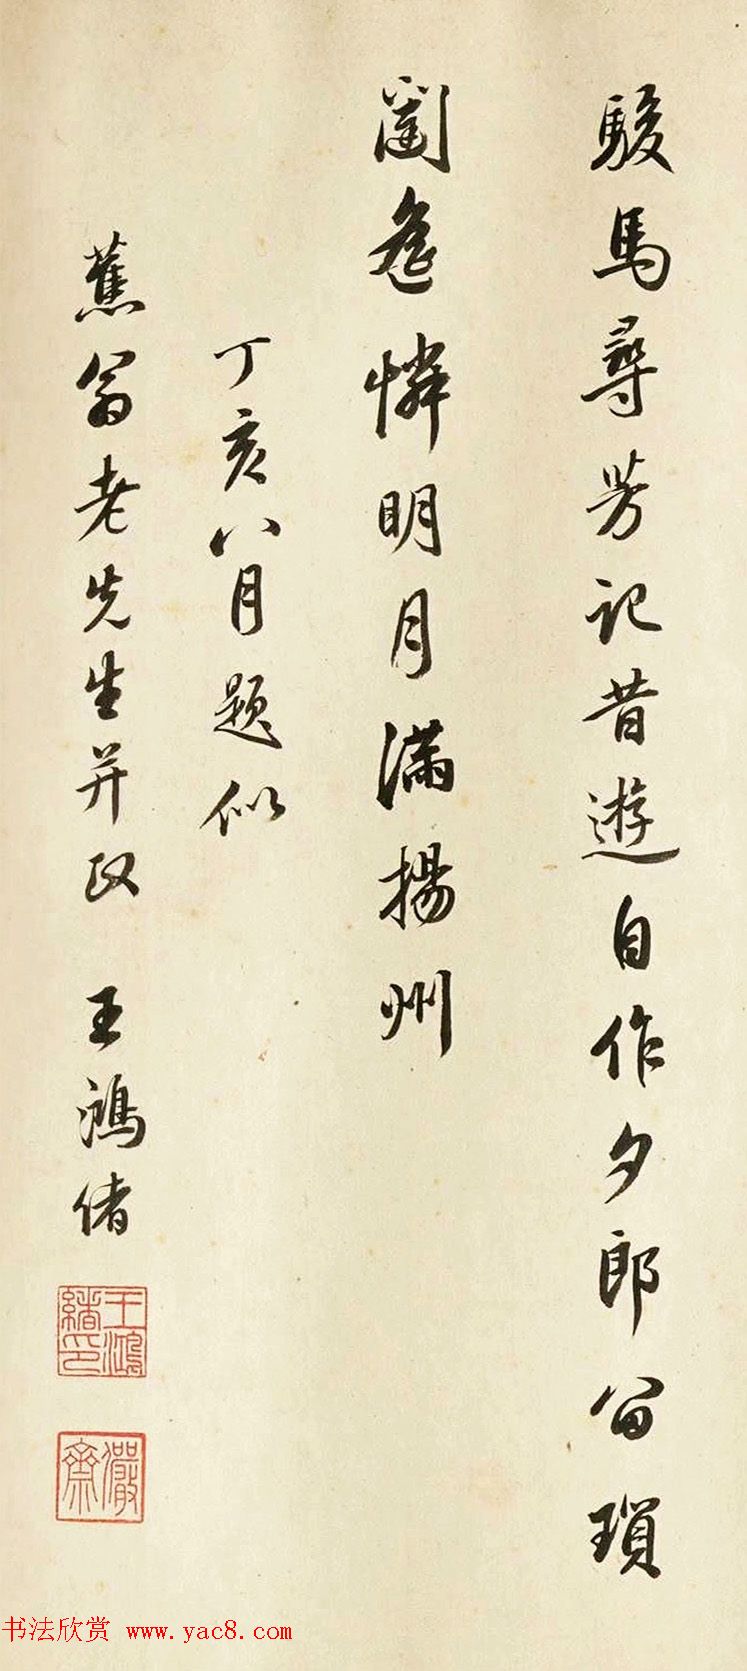 駿馬尋芳記昔遊自作夕郎留瑣
闥應憐明月滿揚州
丁亥八月題似
蕉翁老先生并政 王鴻緒
王鴻緒印
儼齋
书法欣赏 www.yac8.com